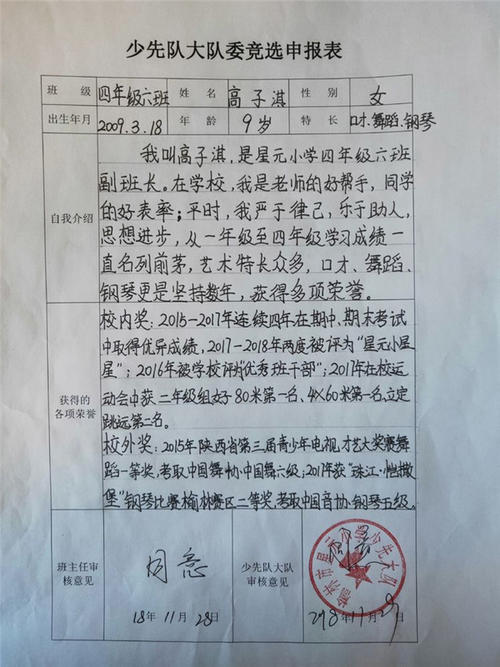 少先队大队委竞选申报表
班 级 四年级六班 姓 名 高子淇 性 别 女
出生年月 2009.3.18 年 龄 9岁 特 长 口才、舞蹈、钢琴
我叫高子淇，是星元小学四年级六班
副班长。在学校，我是老师的好帮手，同学
的好表率；平时，我严于律己，乐于助人，
自我介绍
思想进步，从一年级至四年级学习成绩一
直名列前茅，艺术特长众多，口才、舞蹈、
钢琴更是坚持数年，获得多项荣誉。
校内奖：2015-2017年连续四年在期中、期末考试
中取得优异成绩，2017-2018年两度被评为“星元小星
星”；2016年被学校评为“优秀班干部”；2017年在校运
获得的
各项荣誉
动会中获二年级组女子80米第一名、4×60米第一名、立定
跳远第二名。
校外奖：2015年陕西省第三届青少年电视才艺大奖赛舞
蹈一等奖，考取中国舞协·中国舞六级；2017年获“珠江·恺撒
堡”钢琴比赛榆林赛区二等奖，考取中国音协·钢琴五级。
班主任审
核意见
同意
18年11月28日
少先队大队
审核意见
同意
榆林市星元小学少先大队
2018年11月29